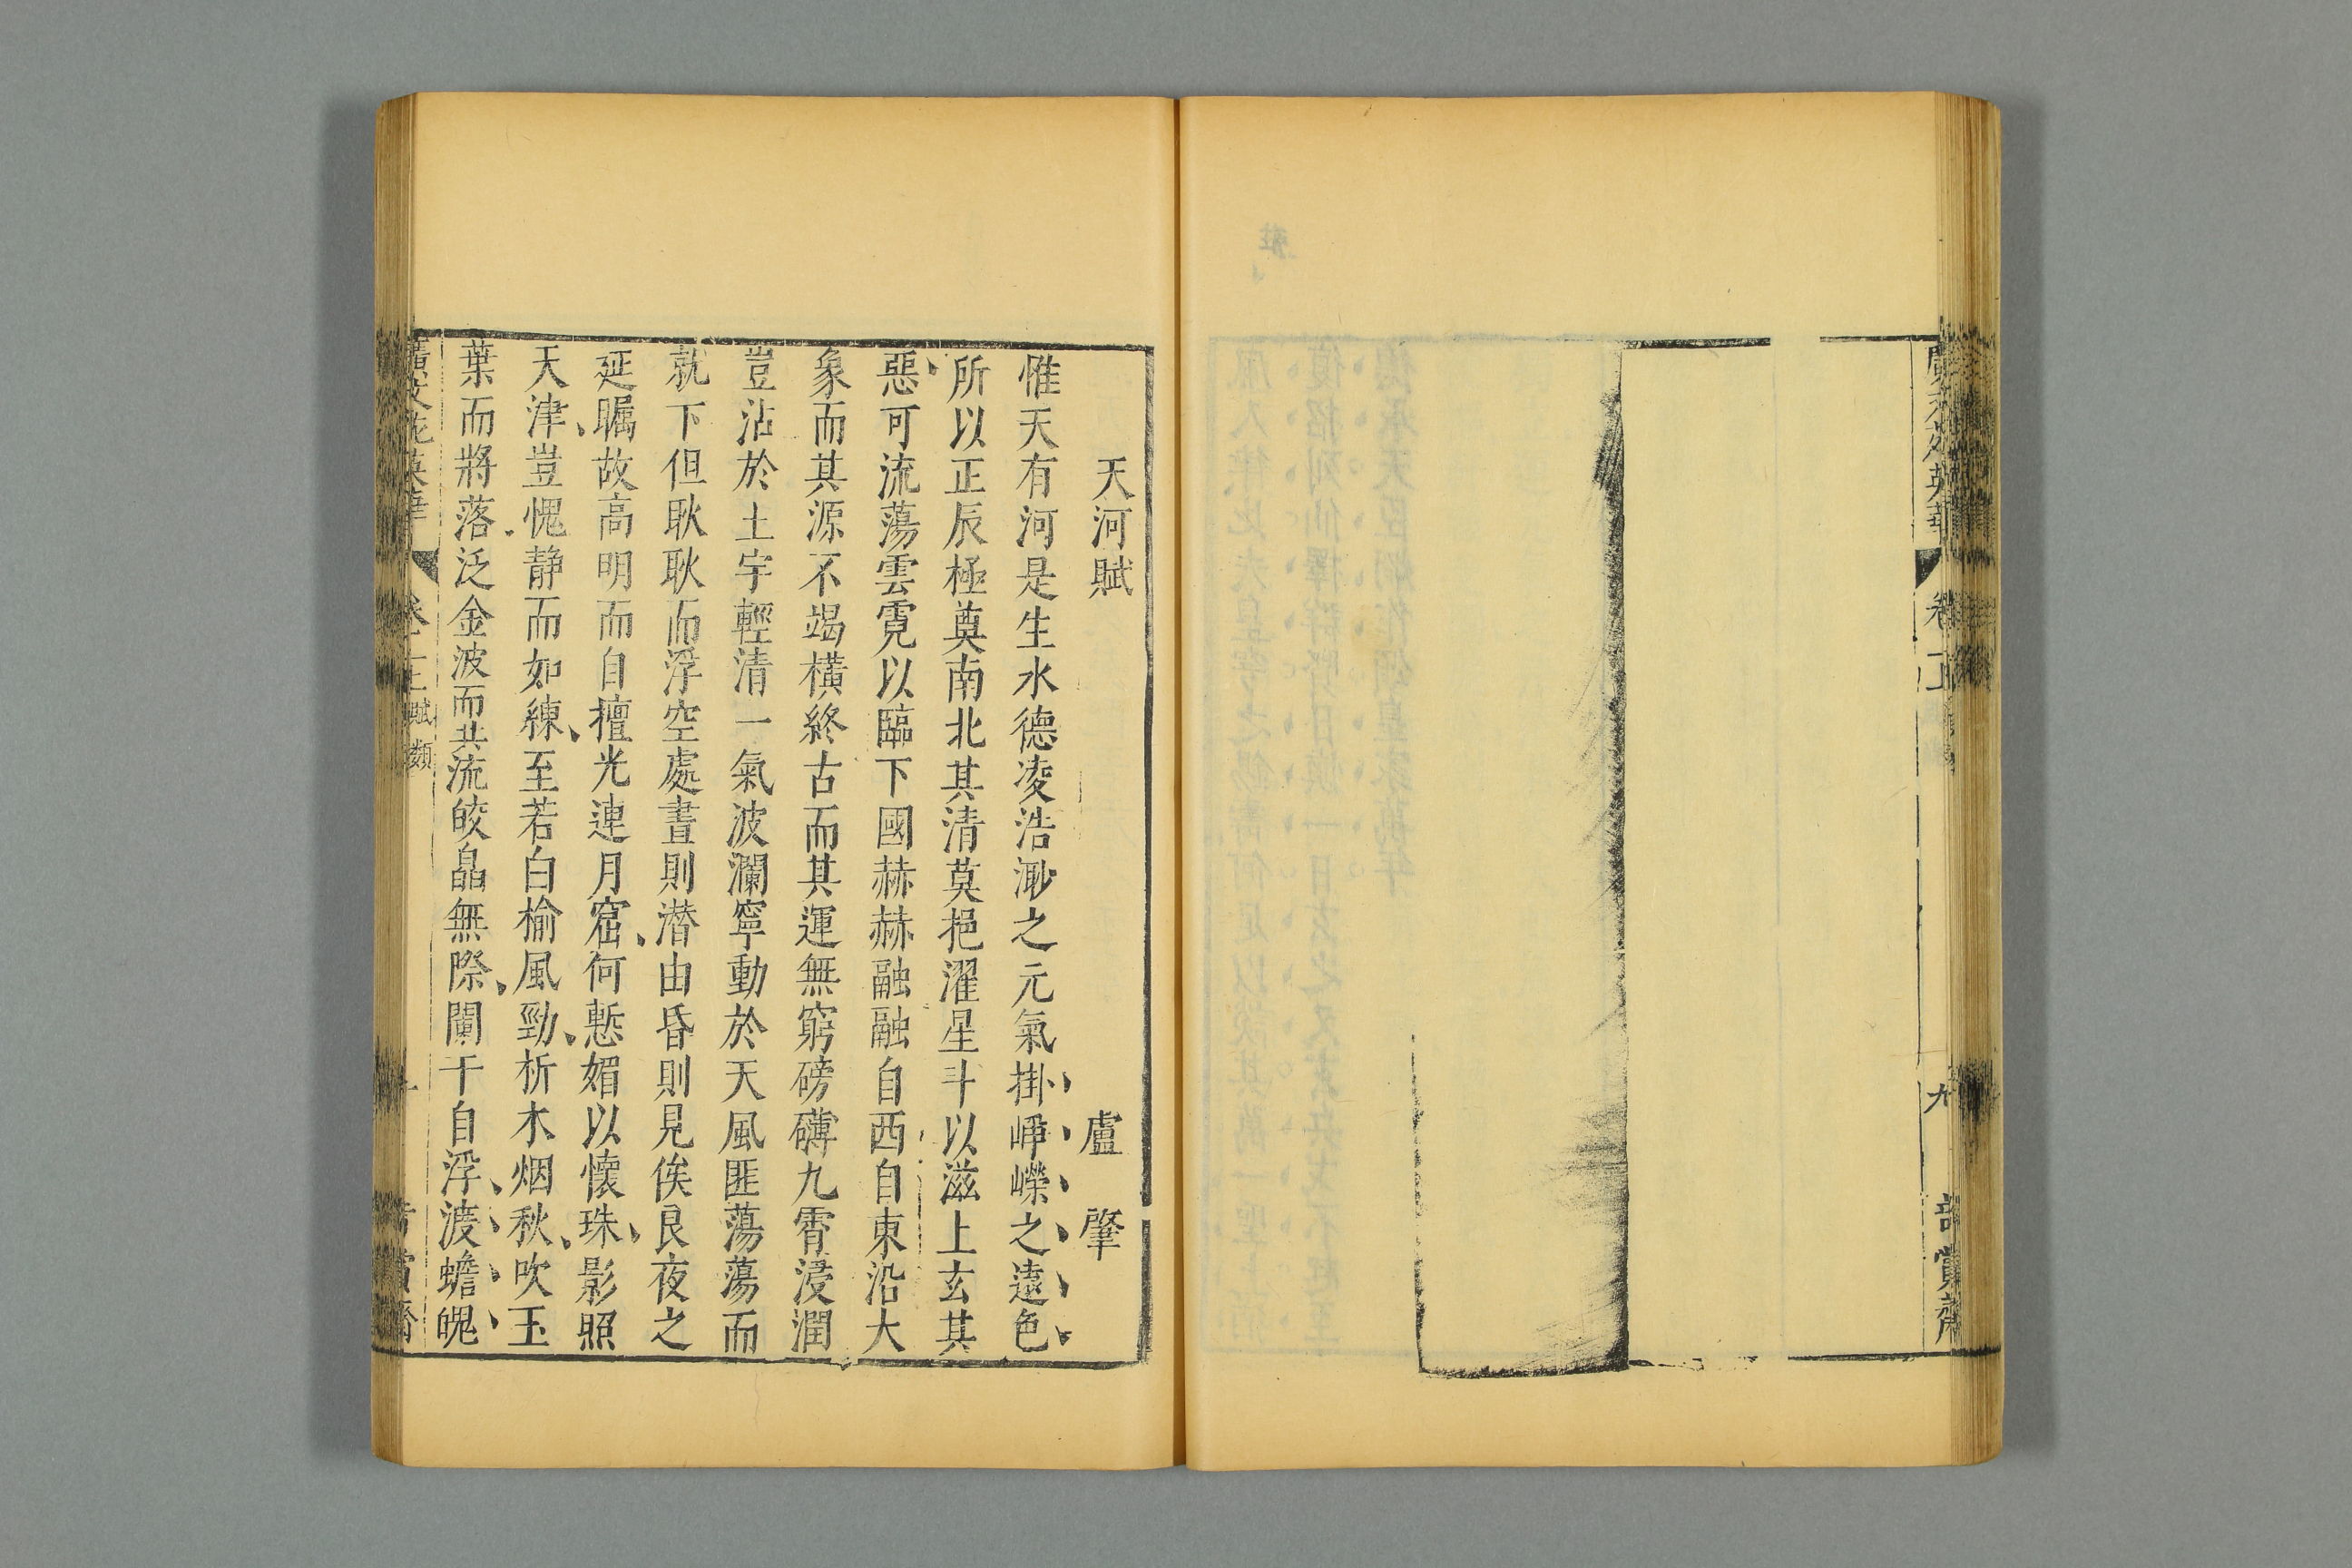 天河賦
盧肇
惟天有河是生水德凌浩渺之元氣掛崢嶸之遠色
所以正辰極奠南北其清莫挹濯星斗以滋上玄其
惡可流蕩雲霓以臨下國赫赫融融自西自東沿大
象而其源不竭橫終古而其運無窮磅礴九霄浸潤
豈沾於土宇輕清一氣波瀾寧動於天風匪蕩蕩而
就下但耿耿而浮空處晝則潛由昏則見俟良夜之
延矚故高明而自擅光連月窟何慙媚以懷珠影照
天津豈愧靜而如練至若白榆風勁析木烟秋吹玉
葉而將落泛金波而共流皎皛無際闌干自浮渡蟾魄